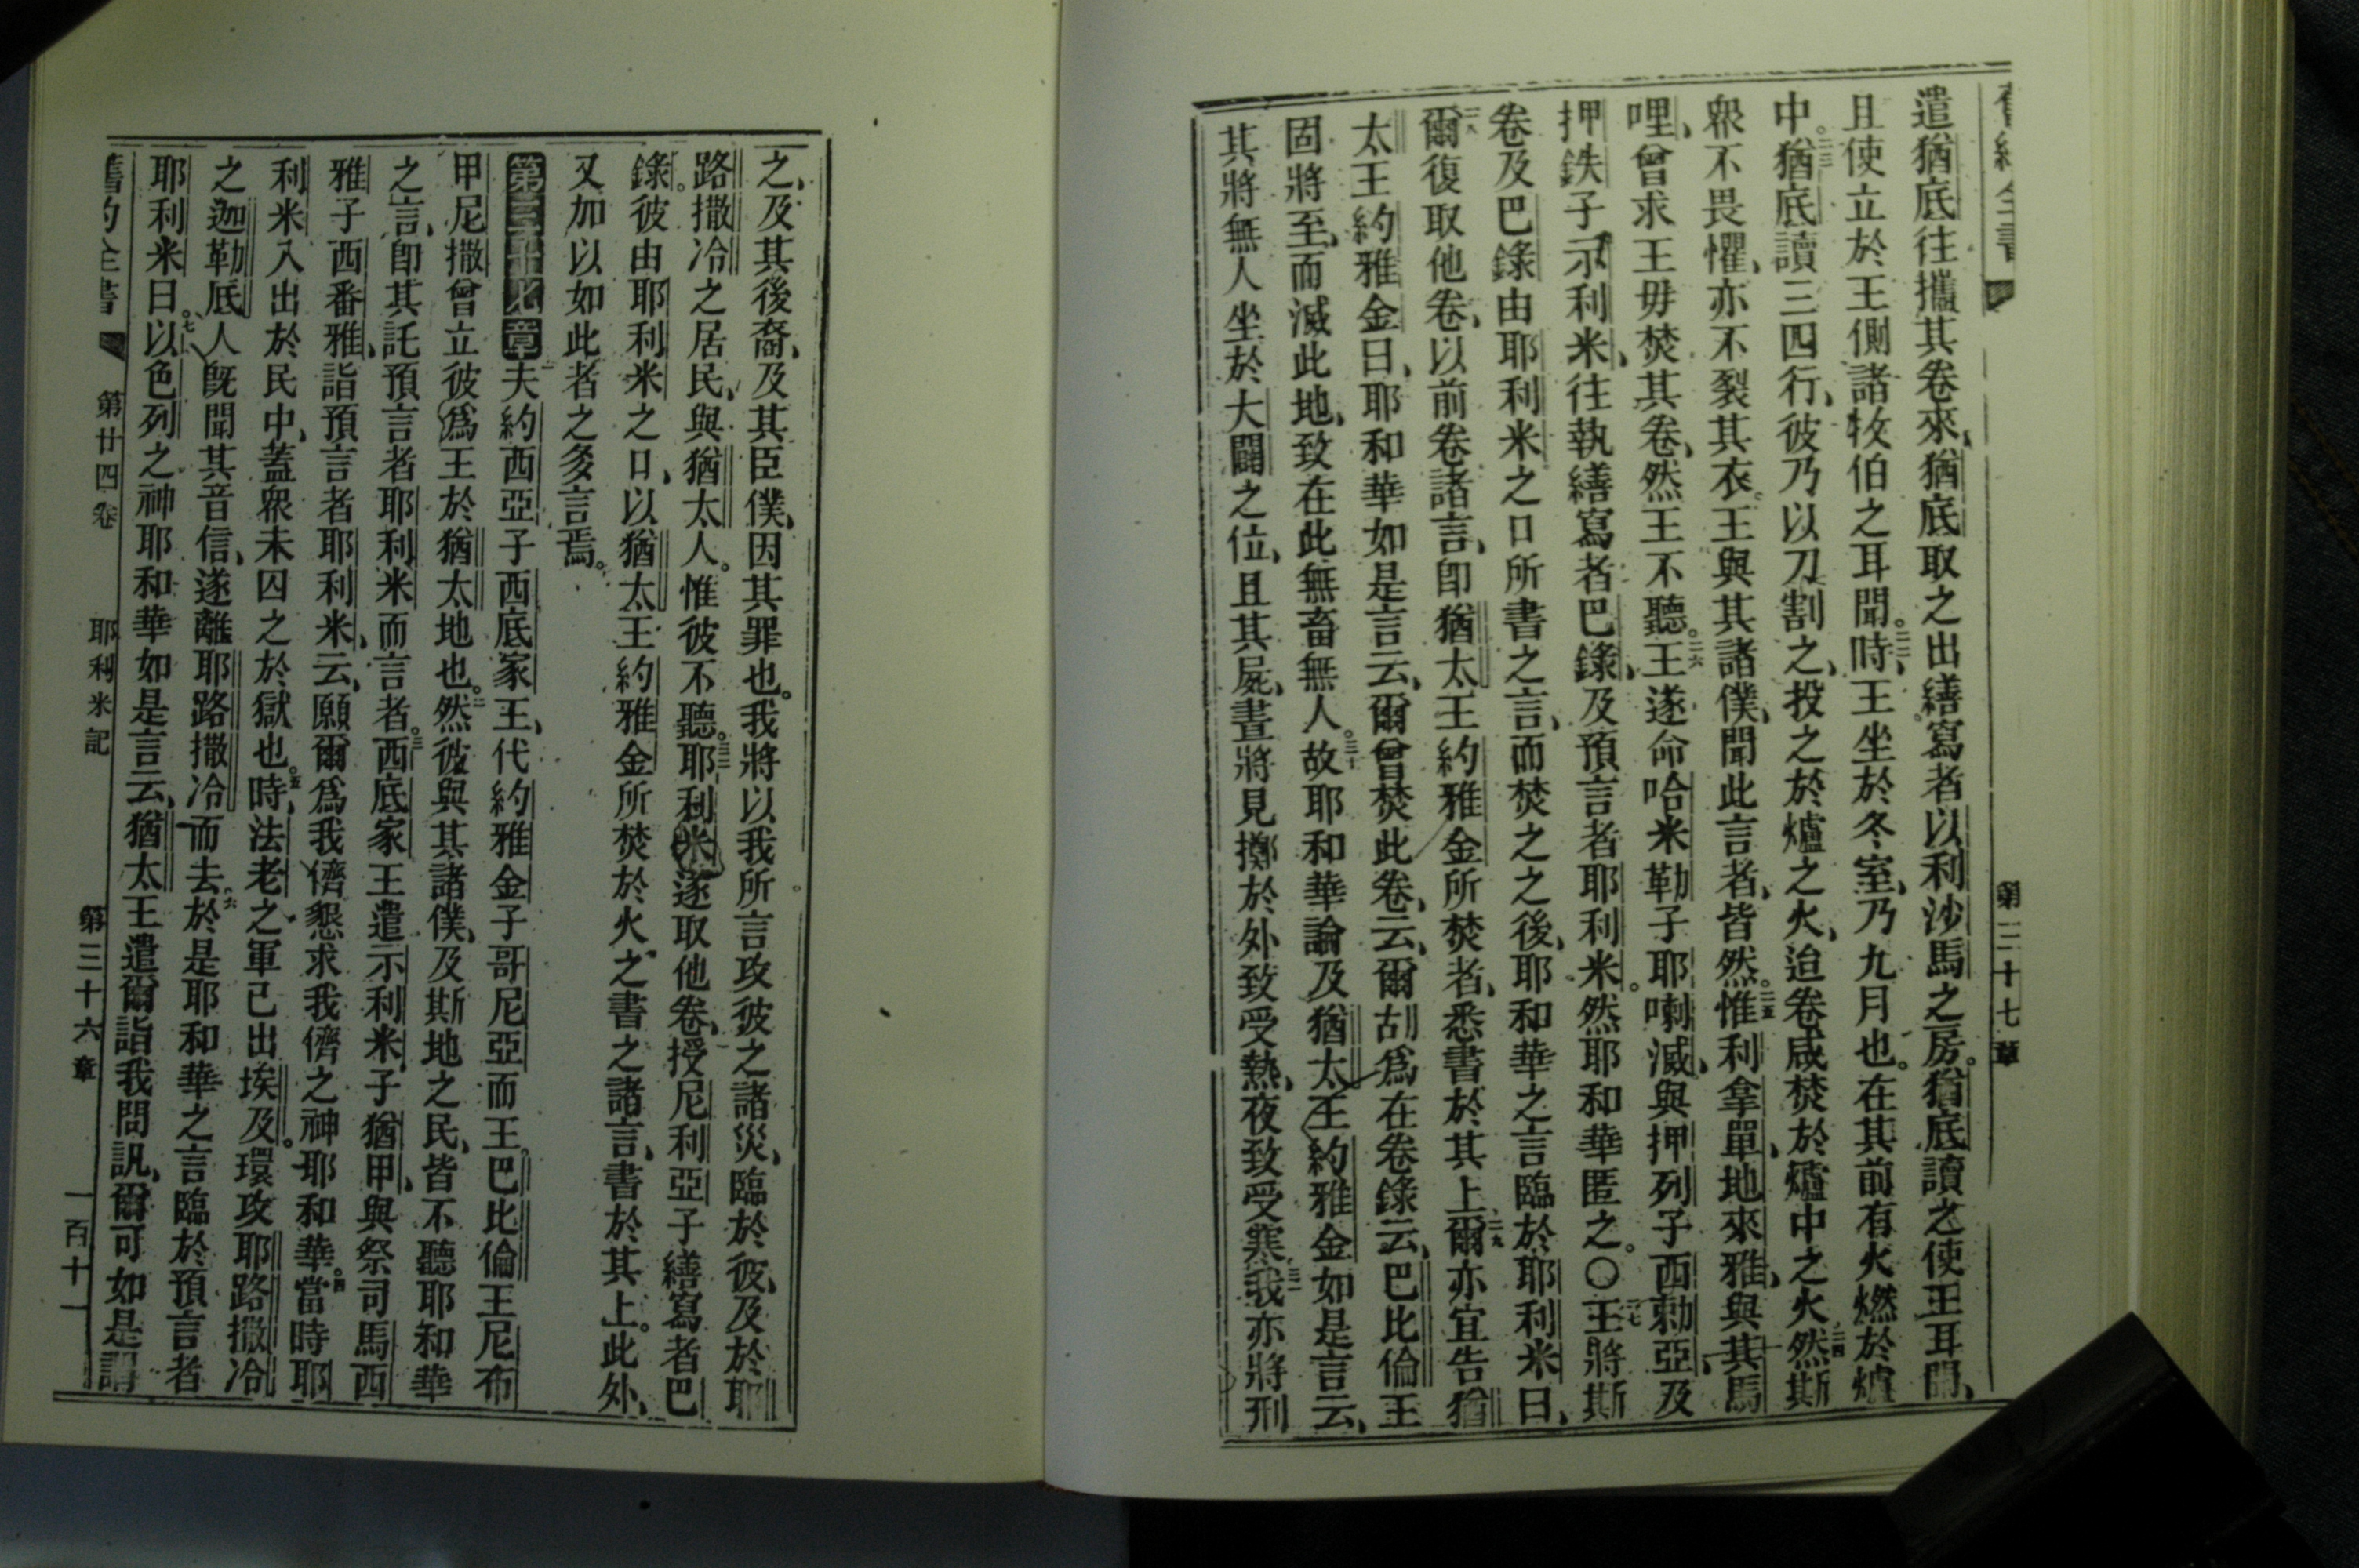 第三十七章
遣猶底往攜其卷來、猶底取之出繕寫者以利沙馬之房。猶底讀之使王耳聞、
且使立於王側諸牧伯之耳聞。二二時、王坐於冬室、乃九月也。在其前有火燃於爐
中。二三猶底讀三四行、彼乃以刀割之、投之於爐之火、迨卷咸焚於爐中之火。二四然斯
衆不畏懼、亦不裂其衣。王與其諸僕、聞此言者、皆然。二五惟利拿單、地來雅、與其馬
哩、曾求王毋焚其卷、然王不聽。二六王遂命哈米勒子耶喇滅、與押列子西勅亞、及
押鉄子示利米、往執繕寫者巴錄、及預言者耶利米。然耶和華匿之。〇二七王將斯
卷及巴錄由耶利米之口所書之言、而焚之之後、耶和華之言臨於耶利米曰、
二八爾復取他卷、以前卷諸言、卽猶太王約雅金所焚者、悉書於其上、二九爾亦宜告猶
太王約雅金曰、耶和華如是言云、爾曾焚此卷、云、爾胡爲在卷錄云、巴比倫王
固將至、而滅此地、致在此無畜無人。三十故耶和華論及猶太王約雅金如是言云、
其將無人坐於大闢之位、且其屍、晝將見擲於外致受熱、夜致受寒。三一我亦將刑
之、及其後裔、及其臣僕、因其罪也。我將以我所言攻彼之諸災、臨於彼、及於耶
路撒冷之居民、與猶太人。惟彼不聽。三二耶利米遂取他卷、授尼利亞子繕寫者巴
錄。彼由耶利米之口、以猶太王約雅金所焚於火之書之諸言、書於其上。此外、
又加以如此者之多言焉。
第三十七章一夫約西亞子西底家王、代約雅金子哥尼亞而王。巴比倫王尼布
甲尼撒曾立彼爲王於猶太地也。二然彼與其諸僕、及斯地之民、皆不聽耶和華
之言、卽其託預言者耶利米而言者。三西底家王遣示利米、子猶甲、與祭司馬西
雅子西番雅、詣預言者耶利米、云、願爾爲我儕懇求我儕之神耶和華。四當時耶
利米入出於民中、蓋衆未囚之於獄也。五時、法老之軍已出埃及。環攻耶路撒冷
之迦勒底人既聞其音信、遂離耶路撒冷而去。六於是耶和華之言臨於預言者
耶利米曰。七以色列之神耶和華如是言云、猶太王遣爾詣我問訊、爾可如是謂
舊約全書 第廿四卷 耶利米記 第三十六章 一百十一